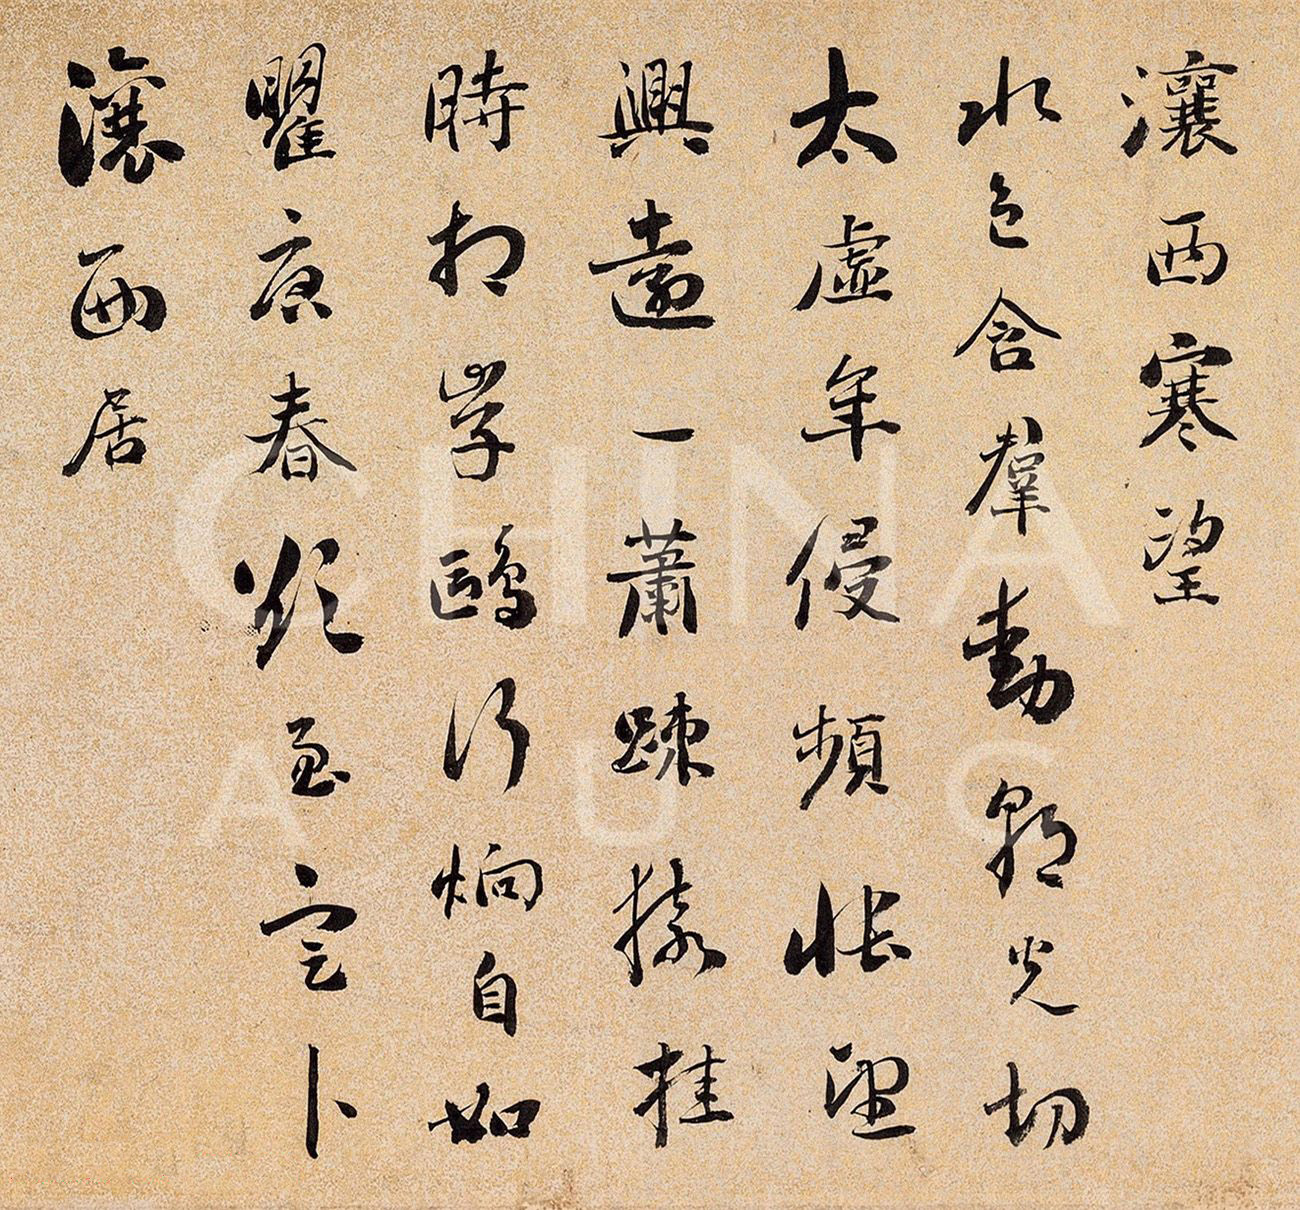 瀼西寒望
水色含羣動朝光切
太虛年侵頻悵望
興遠一蕭踈猨挂
時相學鷗行炯自如
瞿唐春欲至定卜
瀼西居
CHINA
AUG